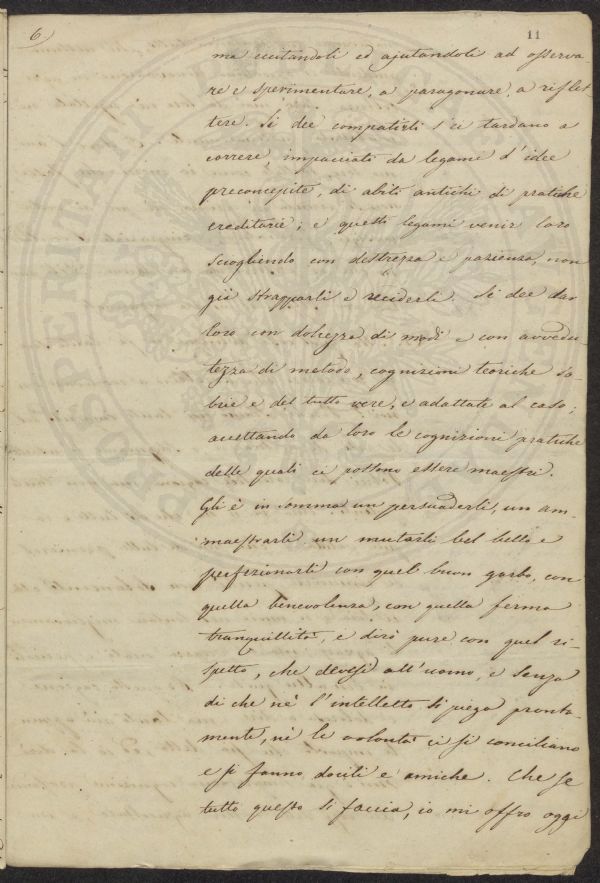 6.)
11
ma eccitandoli ed ajutandoli ad osserva-
re e sperimentare, a paragonare, a riflet
tere. Si dee compatirli s'ei tardano a
correre, impacciati da legame d'idee
preconcepite, di abiti antichi di pratiche
ereditarie; e questi legami venir loro
sciogliendo con destrezza e pazienza, non
già strapparli e reciderli. Si dee dar
loro con dolcezza di modi e con avvedu-
tezza di metodo, cognizioni teoriche so-
brie e del tutto vere, e adattate al caso;
accettando da loro le cognizioni pratiche
delle quali ci possono essere maestri.
Gli è in somma un persuaderli, un am-
maestrarli un mutarli bel bello e
perfezionarli con quel buon garbo, con
quella benevolenza, con quella ferma
tranquillità, e dirò pure con quel ri-
spetto, che devesi all'uomo, e senza
di che nè l'intelletto si piega pronta-
mente, nè le volontà ci si conciliano
e si fanno docili e amiche. Che se
tutto questo si faccia, io mi offro oggi
PROSPERITATI PUBLICAE